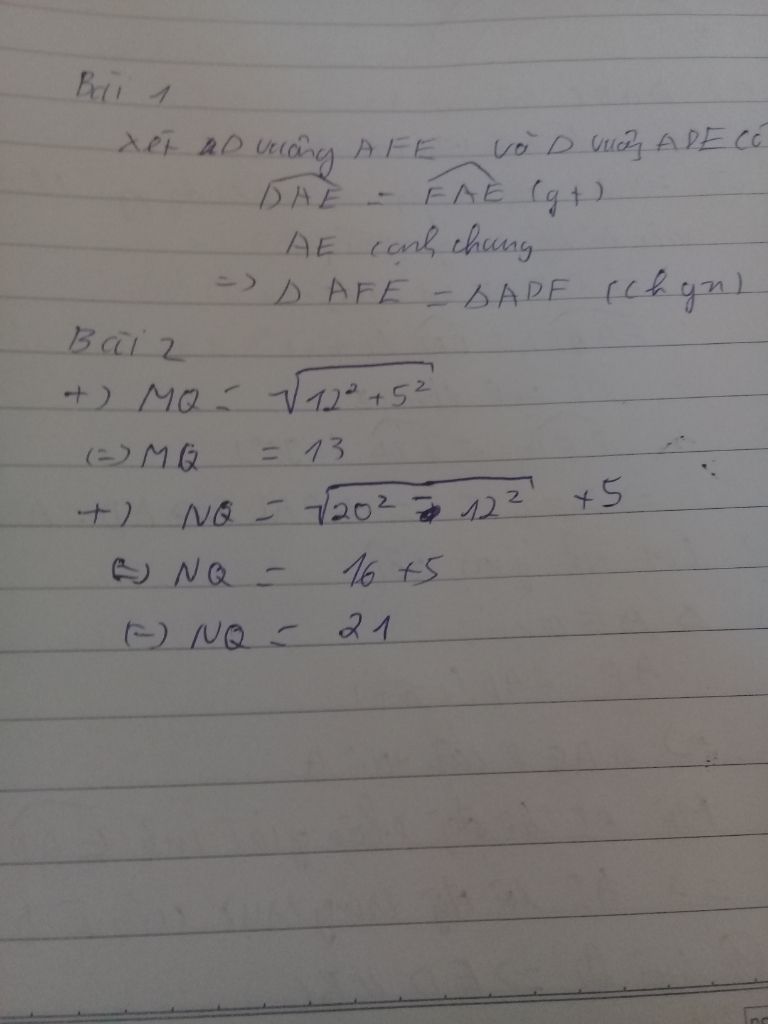 Bài 1
Xét Δ vuông AFE và Δ vuông ADE có
DAE = FAE (gt)
AE cạnh chung
=> Δ AFE = ΔADF (ch gn)
Bài 2
+) MQ = √12² + 5²
(=) MQ = 13
+) NQ = √20² - 12² + 5
(=) NQ = 16 + 5
(=) NQ = 21